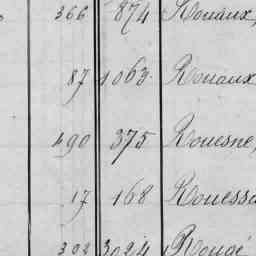 366 874 Rouaux,
87 1063 Rouaux
490 375 Rouesne,
17 168 Rouess
302 3024 Rougé